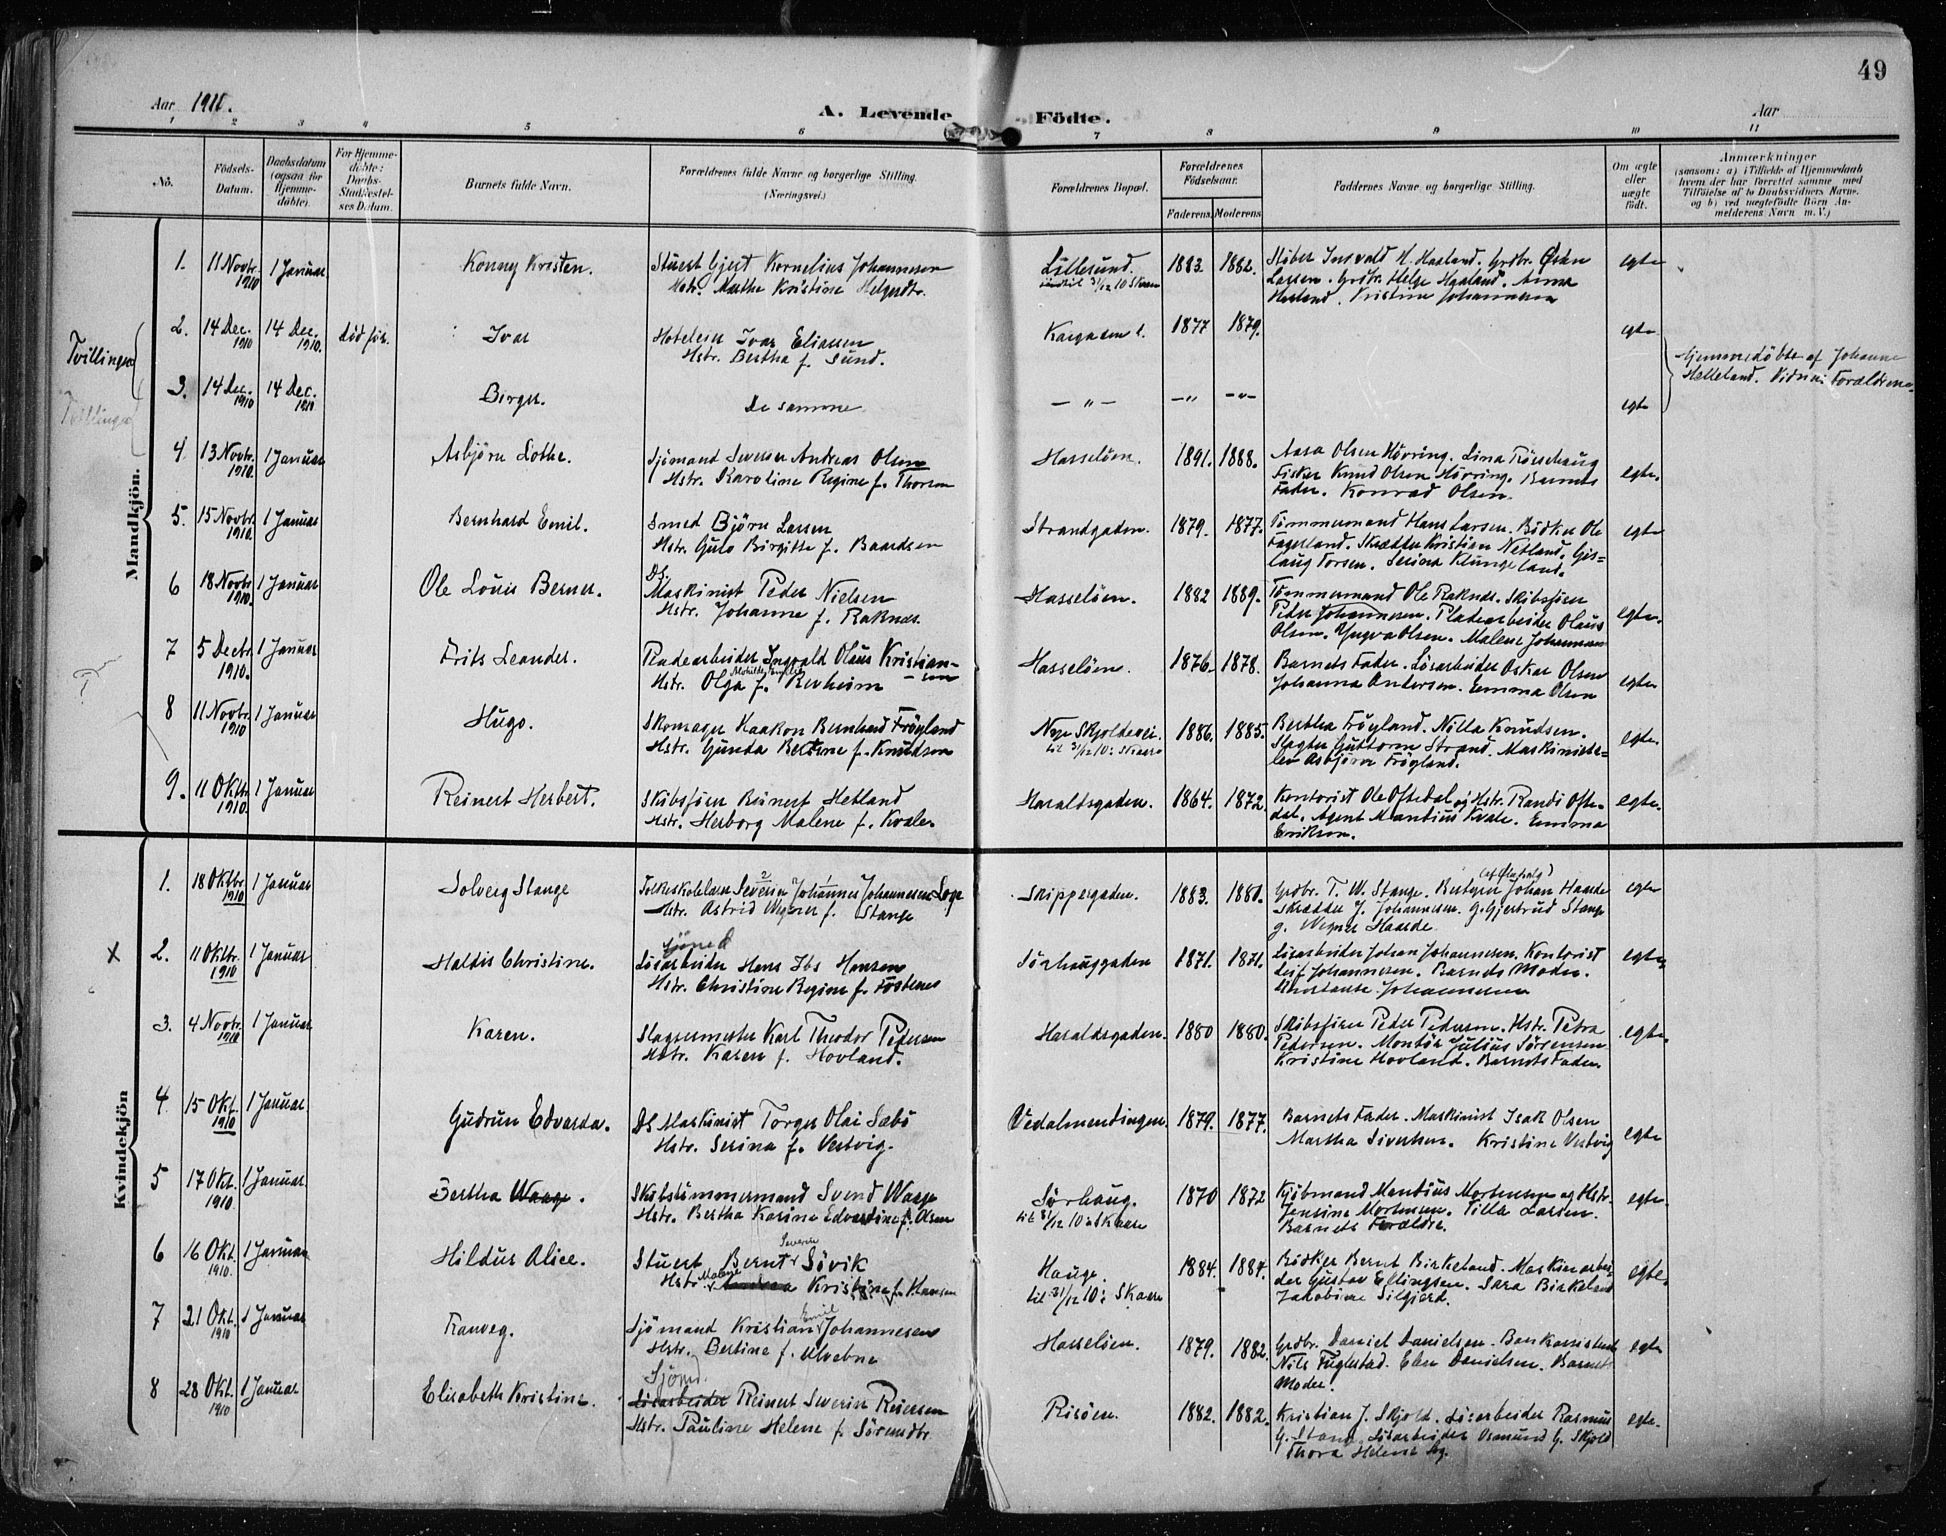 49
Aar 1911.
A. Levende Födte.
Aar
1 2 3 4 5 6 7 8 9 10 11
No.
Födsels-Datum.
Daabsdatum (ogsaa for Hjemme-döbte).
For Hjemme-döbte: Daabs-Stadfæstel-ses Datum.
Barnets fulde Navn.
Forældrenes fulde Navne og borgerlige Stilling. (Næringsvei.)
Forældrenes Bopæl.
Forældrenes Födselsaar.
Faderens. Moderens
Faddernes Navne og borgerlige Stilling.
Om ægte eller uægte födt.
Anmærkninger
(saasom: a) i Tilfælde af Hjemmedaab hvem der har forrettet samme med Tilföielse af to Daabsvidners Navne. og b) ved uægtefödte Börn An-melderens Navn m. V.)
Mandkjön.
1. 11 Novbr. 1910 1 Januar Konny Kristen. Stuert Gjert Kornelius Johannesen
Hstr. Martha Kristine Helgesdtr.
Lillesund. indtil 31/12 10 Skaare 1883. 1882.
Larsen. Grdbr. Helge Haaland. Anna
Haaland. Kristine Johannesen
egte
Tvillinger
2. 14 Dec. 1910 14 Dec. 1910. Ivar Hoteleier Ivar Eliassen
Hstr. Bertha f. Sund.
1877 1879. egte
Hjemmedöbte af Johanne
Helleland. Vidner Forældrene.
Tvillinger
3. 14 Dec. 1910 14 Dec. 1910 Birger. De samme — " — —"— —"— egte
4. 13 Novbr. 1910. 1 Januar Asbjörn Lothe. Sjömand Severin Andreas Olsen
Hstr. Karoline Regine f. Thorsen
Hasselöen. 1891. 1888. Aasa Olsen Hövring. Lina
Fisker Knud Olsen Hövring. Barnets
Fader. Konrad Olsen.
egte.
5. 15 Novbr. 1910. 1 Januar Bernhard Emil. Smed Björn Larsen
Hstr. Guro Birgitte f. Baardsen
Strandgaden. 1879. 1877. Tömmermand Hans Larsen. Bödker Ole
Fagerland. Skrædder Kristian Netland. Gis-
laug Torsen. Serina Klungeland.
egte
6 18 Novbr. 1910. 1 Januar Ole Louis Berner. Ds.
Maskinist Peder Nielsen
Hstr. Johanne f. Raknes.
Hasselöen. 1882 1889. Tömmermand Ole Raknes. Skibsförer
Peder Johannesen. Pladearbeider Olaus
Olsen. Yngva Olsen. Malene Johannesen
egte.
7 5 Decbr. 1910. 1 Januar Frits Leander. Pladearbeider Ingvald Olaus Kristian-
sen
Hstr. Olga f. Revheim
Hasselöen. 1876. 1878. Barnets Fader. Lösarbeider Oskar Olsen
Johanna Andersen. Emma Olsen
egte
8 11 Novbr. 1910 1 Januar Hugo. Skomager Haakon Bernhard Fröyland
Hstr. Gunda Bertine f. Knudsen
Nye Skjoldevei.
til 31/12 10: Skaare
1886. 1885. Bertha Fröyland. Nilla Knudsen.
Slagter Guttorm Strand. Maskinist-
elev Asbjörn Fröyland.
egte.
9. 11 Oktbr. 1910 1 Januar Reinert Herbert. Skibsförer Reinert Hetland
Hstr. Herborg Malene f. Kvale.
Haraldsgaden. 1864. 1872. Kontorist Ole Oftedal og Hstr. Randi Ofte-
dal. Agent Mandius Kvale. Emma
Erikson.
egte.
Kvindekjön
1. 18 Oktbr. 1910 1 Januar Solveig Stange Folkeskolelærer Severin Johannes Johannesen
Hstr. Astrid Wegner f. Stange
Skippergaden. 1883. 1880. Grdbr. T. W. Stange. Johan Haarde
Skrædder J. Johannesen. G. Gjertrud Stange
g. Wegner Haarde
egte
X 2. 11 Oktbr. 1910 1 Januar Haldis Christine.
Lösarbeider Hans Ibs Hansen
Hstr. Christine Regine f.
Sörhauggaden 1871. 1871. Lösarbeider Johan Johannesen. Kontorist
Leif Johannesen. Barnets Moder.
Johannesen
egte
3. 4 Novbr. 1910 1 Januar Karen. Slagtermester Karl Theodor Pedersen
Hstr. Karen f. Hovland.
Haraldsgaden. 1880 1880. Skibsförer Peder Pedersen. Hstr. Petra
Pedersen. Montör Julius Sörensen
Kristine Hovland. Barnets Fader.
egte.
4 15 Okt. 1910 1 Januar Gudrun Edvarda. Ds Maskinist Torger Olai Sæbö
Hstr. Serina f. Vestvig.
Vedalmendingen. 1879. 1877. Barnets Fader. Maskinist Isak Olsen
Martha Sivertsen. Kristine Vestvig
egte
5 17 Okt. 1910. 1 Januar Bertha Waage. Skibstömmermand Svend Waage
Hstr. Bertha Karine Edvardine f. Olsen
Sörhaug.
til 31/12 10: Skaare
1870 1872 Kjöbmand Mandius Mortensen og Hstr.
Jensine Mortensen. Tilla Larsen.
Barnets Forældre.
egte.
6 16 Okt. 1910. 1 Januar Hildur Alice. Stuert Bernt Severin Sövik
Hstr. Malene Kristine f. Hansen
Hauge.
til 31/12 10: Skaare
1884. 1884. Bödker Bernt Birkeland. Maskinarbei-
der Gustav Ellingsen. Sara Birkeland
Jakobine
egte.
7 21 Okt. 1910 1 Januar Ranveg. Sjömand Kristian Emil Johannesen
Hstr. Bertine f. Alvebne
Hasselöen. 1879. 1882. Grdbr. Daniel Danielsen. Bankassistent
Nils Fuglestad. Elen Danielsen. Barnets
Moder.
egte
8 28 Okt. 1910 1 Januar Elisabeth Kristine. Sjömd.
Lösarbeider Reinert Severin Reiersen
Hstr. Pauline Helene f. Sörensdtr
Risöen. 1882. 1882. Kristian J. Skjold. Lösarbeider Rasmus
G. Stand. Lösarbeider Osmund G. Skjold
Thora Helene
egte.